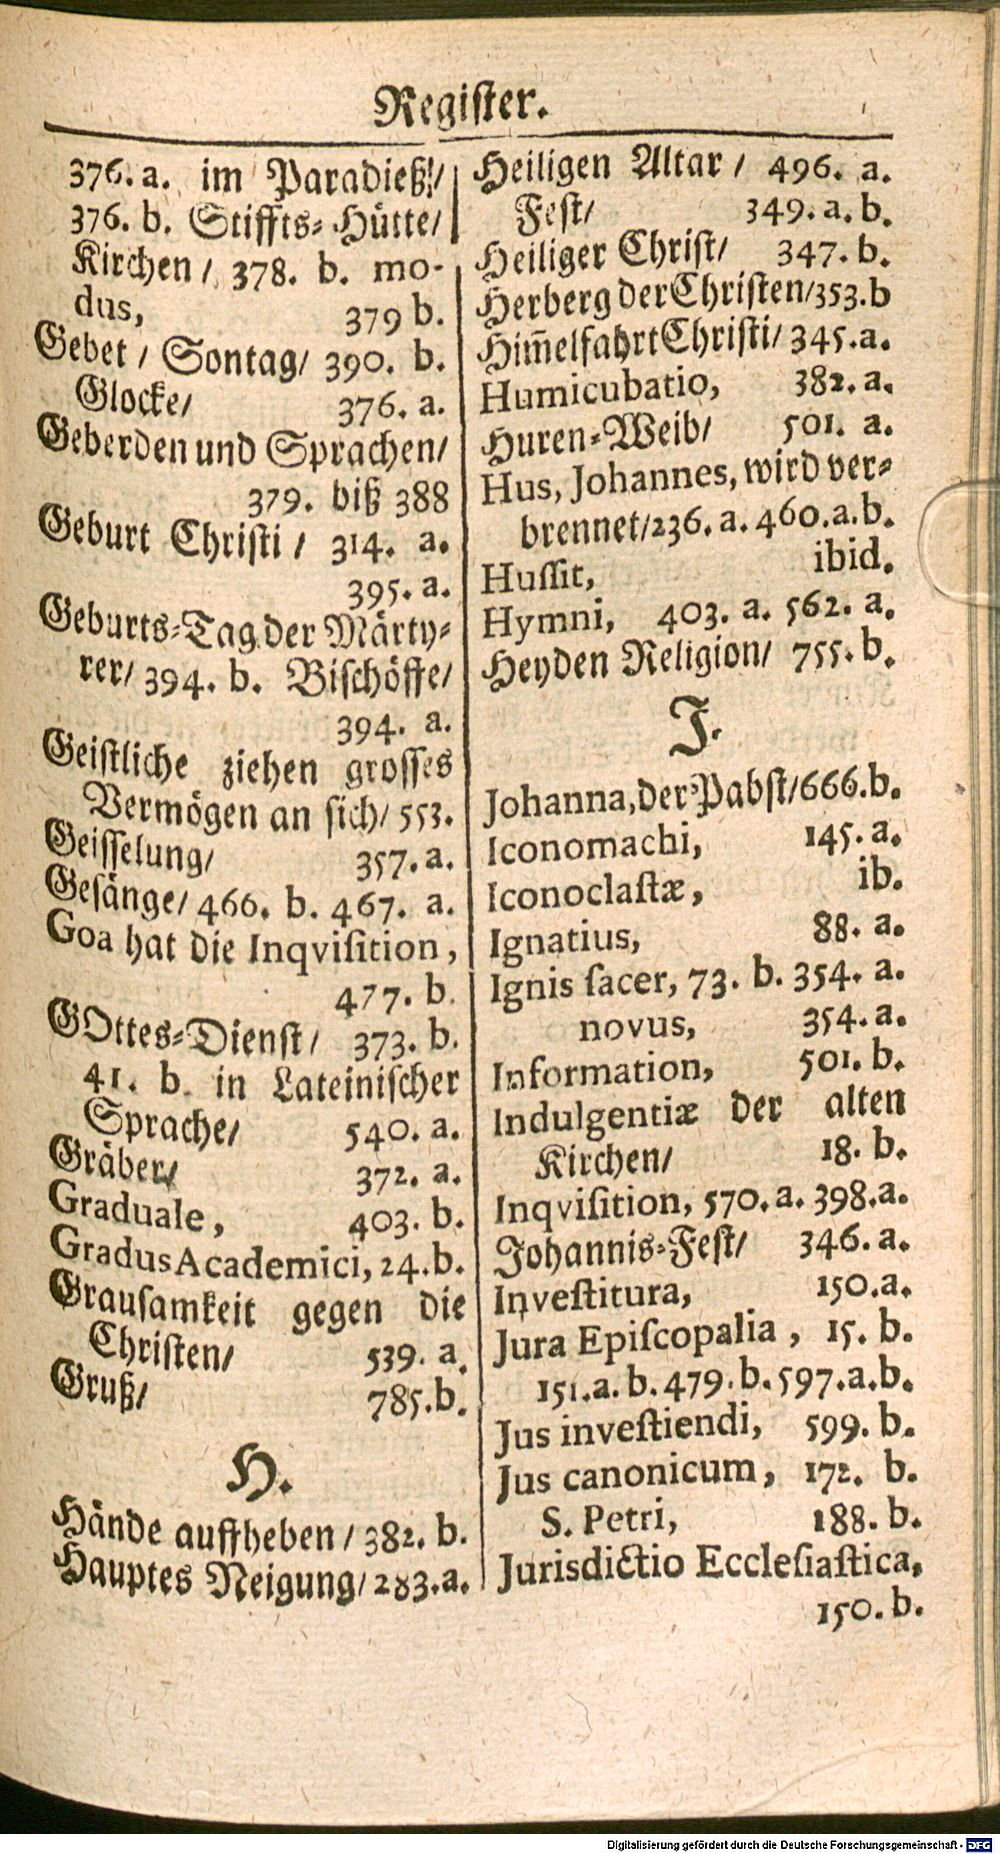 Regiſter.
376. a. im Paradieß!/
376. b. Stiffts-Hütte/
Kirchen/ 378. b. mo-
dus, 379 b.
Gebet / Sontag/ 390. b.
Glocke/ 376. a.
Geberden und Sprachen/
379. biß 388
Geburt Chriſti / 314. a.
395. a.
Geburts-Tag der Märty-
rer/ 394. b. Biſchöffe/
394. a.
Geiſtliche ziehen groſſes
Vermögen an ſich/ 553.
Geiſſelung/ 357. a.
Geſänge/ 466. b. 467. a.
Goa hat die Inqviſition,
477. b.
GOttes-Dienſt/ 373. b.
41. b. in Lateiniſcher
Sprache/ 540. a.
Gräber/ 372. a.
Graduale, 403. b.
Gradus Academici, 24. b.
Grauſamkeit gegen die
Chriſten/ 539. a.
Gruß/ 785. b.
H.
Hände auffheben / 382. b.
Hauptes Neigung/ 283. a.
Heiligen Altar / 496. a.
Feſt/ 349. a. b.
Heiliger Chriſt/ 347. b.
Herberg der Chriſten/ 353. b
Him̃elfahrt Chriſti/ 345. a.
Humicubatio, 382. a.
Huren-Weib/ 501. a.
Hus, Johannes, wird ver-
brennet/ 236. a. 460. a. b.
Huſſit, ibid.
Hymni, 403. a. 562. a.
Heyden Religion/ 755. b.
J.
Johanna, der Pabſt/ 666. b.
Iconomachi, 145. a.
Iconoclaſtæ, ib.
Ignatius, 88. a.
Ignis ſacer, 73. b. 354. a.
novus, 354. a.
Information, 501. b.
Indulgentiæ der alten
Kirchen/ 18. b.
Inqviſition, 570. a. 398. a.
Johannis-Feſt/ 346. a.
Inveſtitura, 150. a.
Jura Epiſcopalia, 15. b.
151. a. b. 479. b. 597. a. b.
Jus inveſtiendi, 599. b.
Jus canonicum, 172. b.
S. Petri, 188. b.
Jurisdictio Eccleſiaſtica,
150. b.
Digitalisierung gefördert durch die Deutsche Forschungsgemeinschaft - DFG